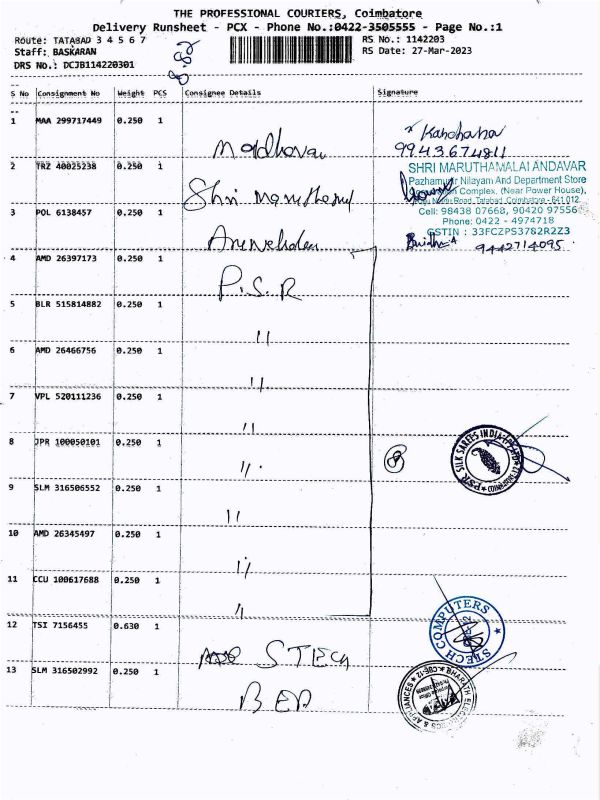 THE PROFESSIONAL COURIERS, Coimbatore
Delivery Runsheet - PCX - Phone No.:0422-3505555 - Page No.:1
Route: TATABAD 3 4 5 6 7
Staff: BASKARAN
DRS No.: DCJB114220301
RS No.: 1142203
RS Date: 27-Mar-2023
S No Consignment No Weight PCS Consignee Details Signature
1 MAA 299717449 0.250 1 Madhavan Kanchana
9943674811
2 TRZ 40025238 0.250 1 Shri
SHRI MARUTHAMALAI ANDAVAR
Pazhamudir Nilayam And Department Store
Complex, (Near Power House),
Road, Tatabad, Coimbatore - 641 012.
Cell: 98438 07668, 90420 97556
Phone: 0422 - 4974718
GSTIN : 33FCZPS3782R2Z3
3 POL 6138457 0.250 1 9442714095
4 AMD 26397173 0.250 1 P.S.R
5 BLR 515814882 0.250 1 "
6 AMD 26466756 0.250 1 "
7 VPL 520111236 0.250 1 "
8 JPR 100050101 0.250 1 " 8
PSR SILK SAREES INDIA (P) LTD
9 SLM 316506552 0.250 1 "
10 AMD 26345497 0.250 1 "
11 CCU 100617688 0.250 1 "
12 TSI 7156455 0.630 1 STECH
STECH COMPUTERS
13 SLM 316502992 0.250 1 BEA
BHARATH ELECTRONICS & APPLIANCES
CBE-12